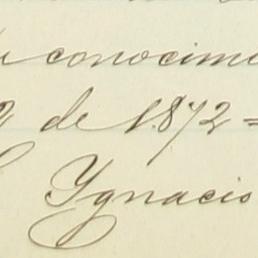 su conocim
de 1872=
Ygnacio